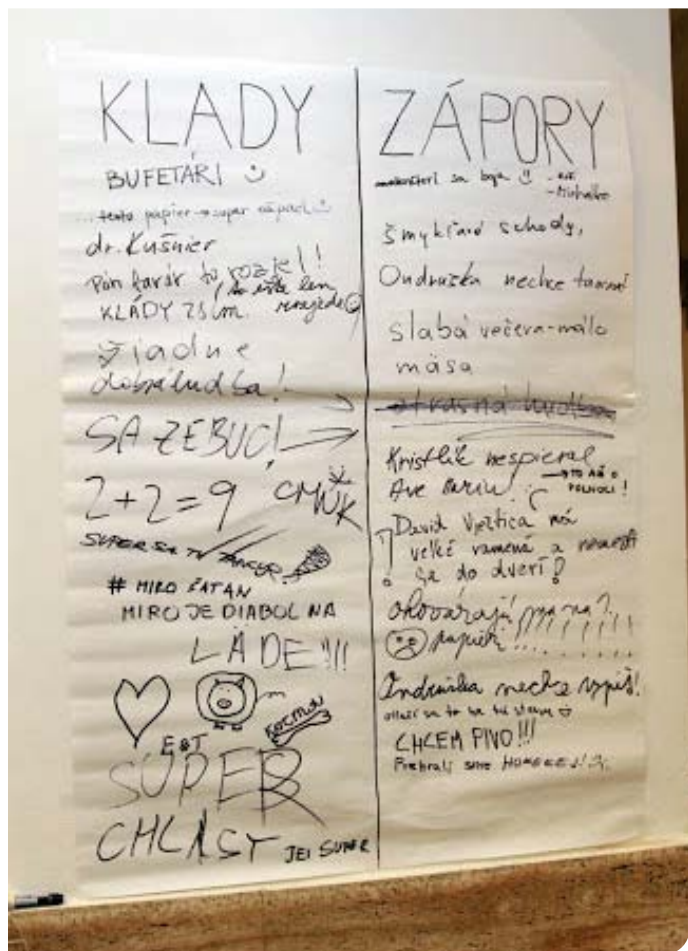 KLADY
BUFETÁRI
tento papier → super nápad
dr. Kušnier
Pán farár to
KLÁDY
žiadne
dobrá ludba!
SA ZEBUC!
2+2=9 CMŮK
SUPER SA TU
# MIRO ŠATAN
MIRO JE DIABOL NA
LADE!!!!
EBT
SUPER
CHLAST JEJ SUPER
ZÁPORY
sa boja
- Michalko
šmykľavé schody,
Ondruška nechce
slabá večera - málo
mäsa
strašná hudba
Kristlík nespieval
Ave Mariu!
→ TO AŽ O
POLNOCI!
David má
veľké ramená a nemestí
sa do dverí?
ohovárajú ma na
papieri!!!!!!
Ondruška nechce vypiť!
CHCEM PIVO!!!
Prehrali sme